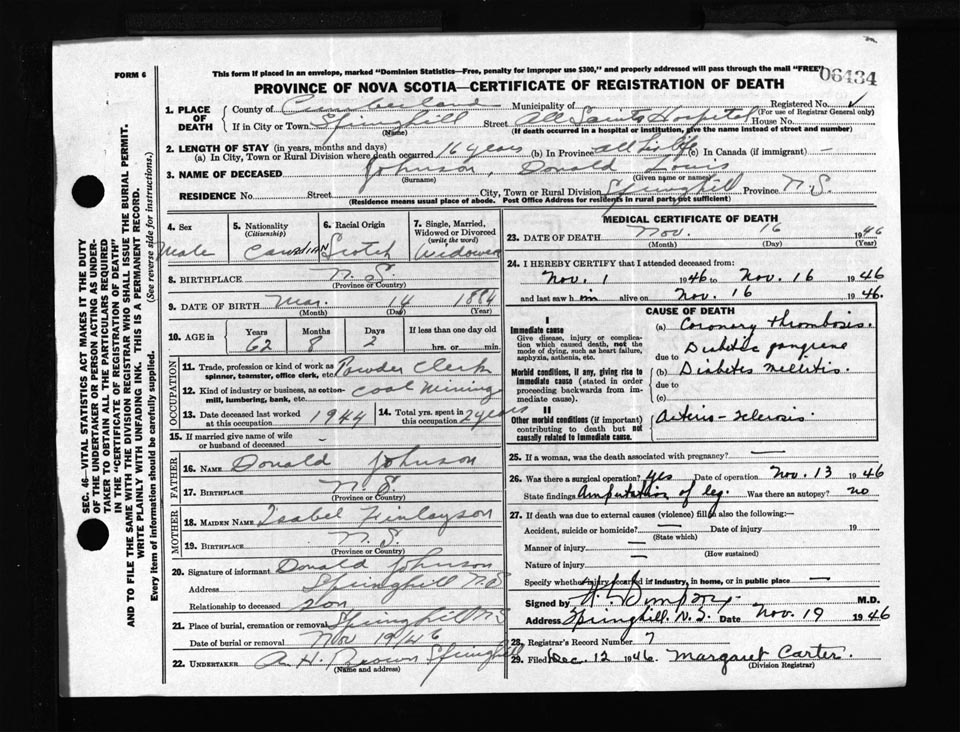 FORM 6
This form if placed in an envelope, marked "Dominion Statistics—Free, penalty for improper use $300," and properly addressed will pass through the mail "FREE"
06434
PROVINCE OF NOVA SCOTIA—CERTIFICATE OF REGISTRATION OF DEATH
SEC. 46—VITAL STATISTICS ACT MAKES IT THE DUTY
OF THE UNDERTAKER OR PERSON ACTING AS UNDER-
TAKER TO OBTAIN ALL THE PARTICULARS REQUIRED
IN THE "CERTIFICATE OF REGISTRATION OF DEATH"
AND TO FILE THE SAME WITH THE DIVISION REGISTRAR WHO SHALL ISSUE THE BURIAL PERMIT.
WRITE PLAINLY WITH UNFADING INK. THIS IS A PERMANENT RECORD.
Every item of information should be carefully supplied. (See reverse side for instructions.)
1. PLACE OF DEATH County of Cumberland Municipality of Registered No. (For use of Registrar General only)
If in City or Town Springhill (Name) Street All Saints Hospital House No.
(If death occurred in a hospital or institution, give the name instead of street and number)
2. LENGTH OF STAY (in years, months and days)
(a) In City, Town or Rural Division where death occurred 16 years (b) In Province all his life (c) In Canada (if immigrant) –
3. NAME OF DECEASED Johnson, Donald Louis
(Surname) (Given name or names)
RESIDENCE No. Street City, Town or Rural Division Springhill Province N.S.
(Residence means usual place of abode. Post Office Address for residents in rural parts not sufficient)
4. Sex Male
5. Nationality (Citizenship) Canadian
6. Racial Origin Scotch
7. Single, Married, Widowed or Divorced (write the word) Widower
8. BIRTHPLACE N.S.
(Province or Country)
9. DATE OF BIRTH Mar. 14 1884
(Month) (Day) (Year)
10. AGE in Years Months Days If less than one day old
62 8 2 hrs. or min.
OCCUPATION
11. Trade, profession or kind of work as spinner, teamster, office clerk, etc. Powder Clerk
12. Kind of industry or business, as cotton-mill, lumbering, bank, etc. coal mining
13. Date deceased last worked at this occupation 1944
14. Total yrs. spent in this occupation 2 years
15. If married give name of wife or husband of deceased –
FATHER
16. NAME Donald Johnson
17. BIRTHPLACE N.S.
(Province or Country)
MOTHER
18. MAIDEN NAME Isabel Finlayson
19. BIRTHPLACE N.S.
(Province or Country)
20. Signature of informant Donald Johnson
Address Springhill N.S
Relationship to deceased son
21. Place of burial, cremation or removal Springhill N.S
Date of burial or removal Nov 19/46
22. UNDERTAKER A. H. Brown Springhill
(Name and address)
MEDICAL CERTIFICATE OF DEATH
23. DATE OF DEATH Nov. 16 1946
(Month) (Day) (Year)
24. I HEREBY CERTIFY that I attended deceased from:
Nov. 1 1946 to Nov. 16 1946
and last saw him alive on Nov. 16 1946.
CAUSE OF DEATH
I
Immediate cause
Give disease, injury or complication which caused death, not the mode of dying, such as heart failure, asphyxia, asthenia, etc.
(a) Coronary thrombosis.
Diabetic gangrene
due to
Morbid conditions, if any, giving rise to immediate cause (stated in order proceeding backwards from immediate cause).
(b) Diabetes Mellitis.
due to
(c)
II
Other morbid conditions (if important) contributing to death but not causally related to immediate cause.
Arterio-sclerosis.
25. If a woman, was the death associated with pregnancy? —
26. Was there a surgical operation? yes Date of operation Nov. 13 1946
State findings Amputation of leg. Was there an autopsy? no
27. If death was due to external causes (violence) fill in also the following:—
Accident, suicide or homicide? — Date of injury 19
(State which)
Manner of injury —
(How sustained)
Nature of injury —
Specify whether injury occurred in industry, in home, or in public place —
Signed by M.D.
Address Springhill. N.S. Date Nov. 19 1946
28. Registrar's Record Number 7
29. Filed Dec. 12 1946. Margaret Carter.
(Division Registrar)